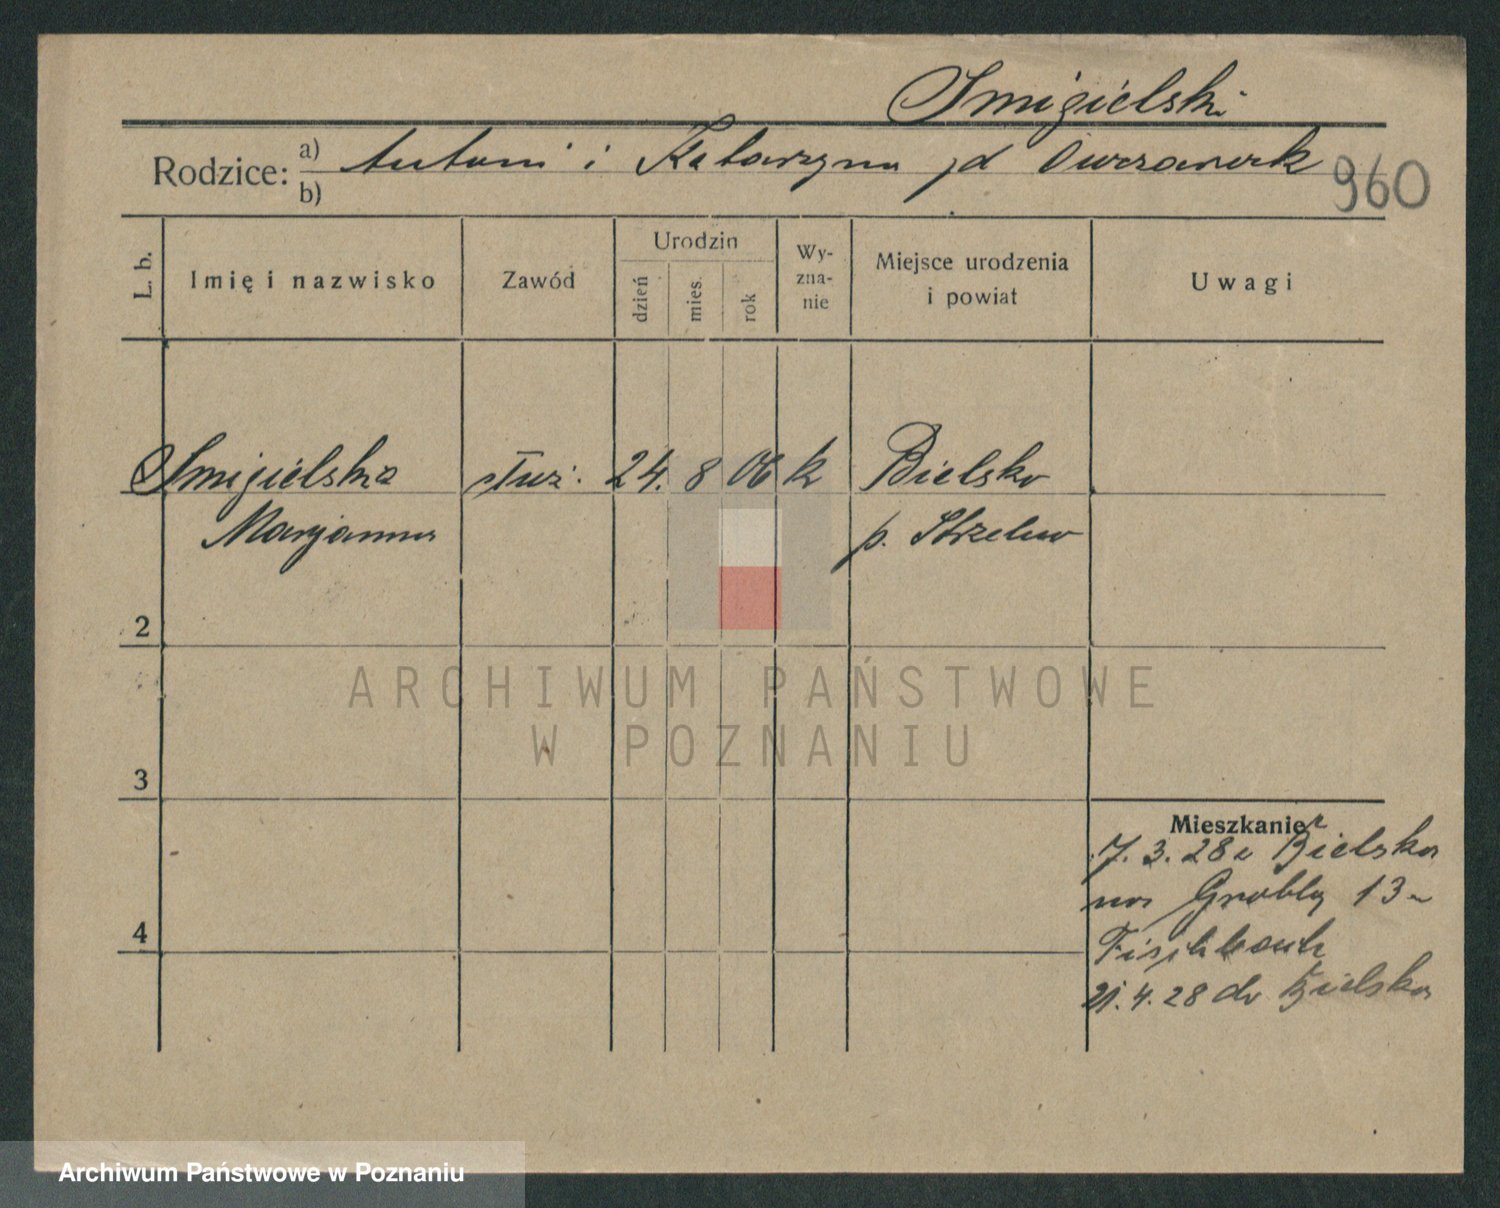 Smigielski
Rodzice: a) Antoni i Katarzyna pd Owczarek
b)
960
L. b.
Imię i nazwisko
Zawód
Urodzin
dzień
mies.
rok
Wy-
zna-
nie
Miejsce urodzenia
i powiat
Uwagi
Smigielska służ. 24. 8 06 k Bielsko
Marjanna p. Strzelno
2
3
4
Mieszkanie
7. 3. 28 z Bielska
na Grobla 13
21. 4. 28 do Bielska
ARCHIWUM PAŃSTWOWE
W POZNANIU
Archiwum Państwowe w Poznaniu